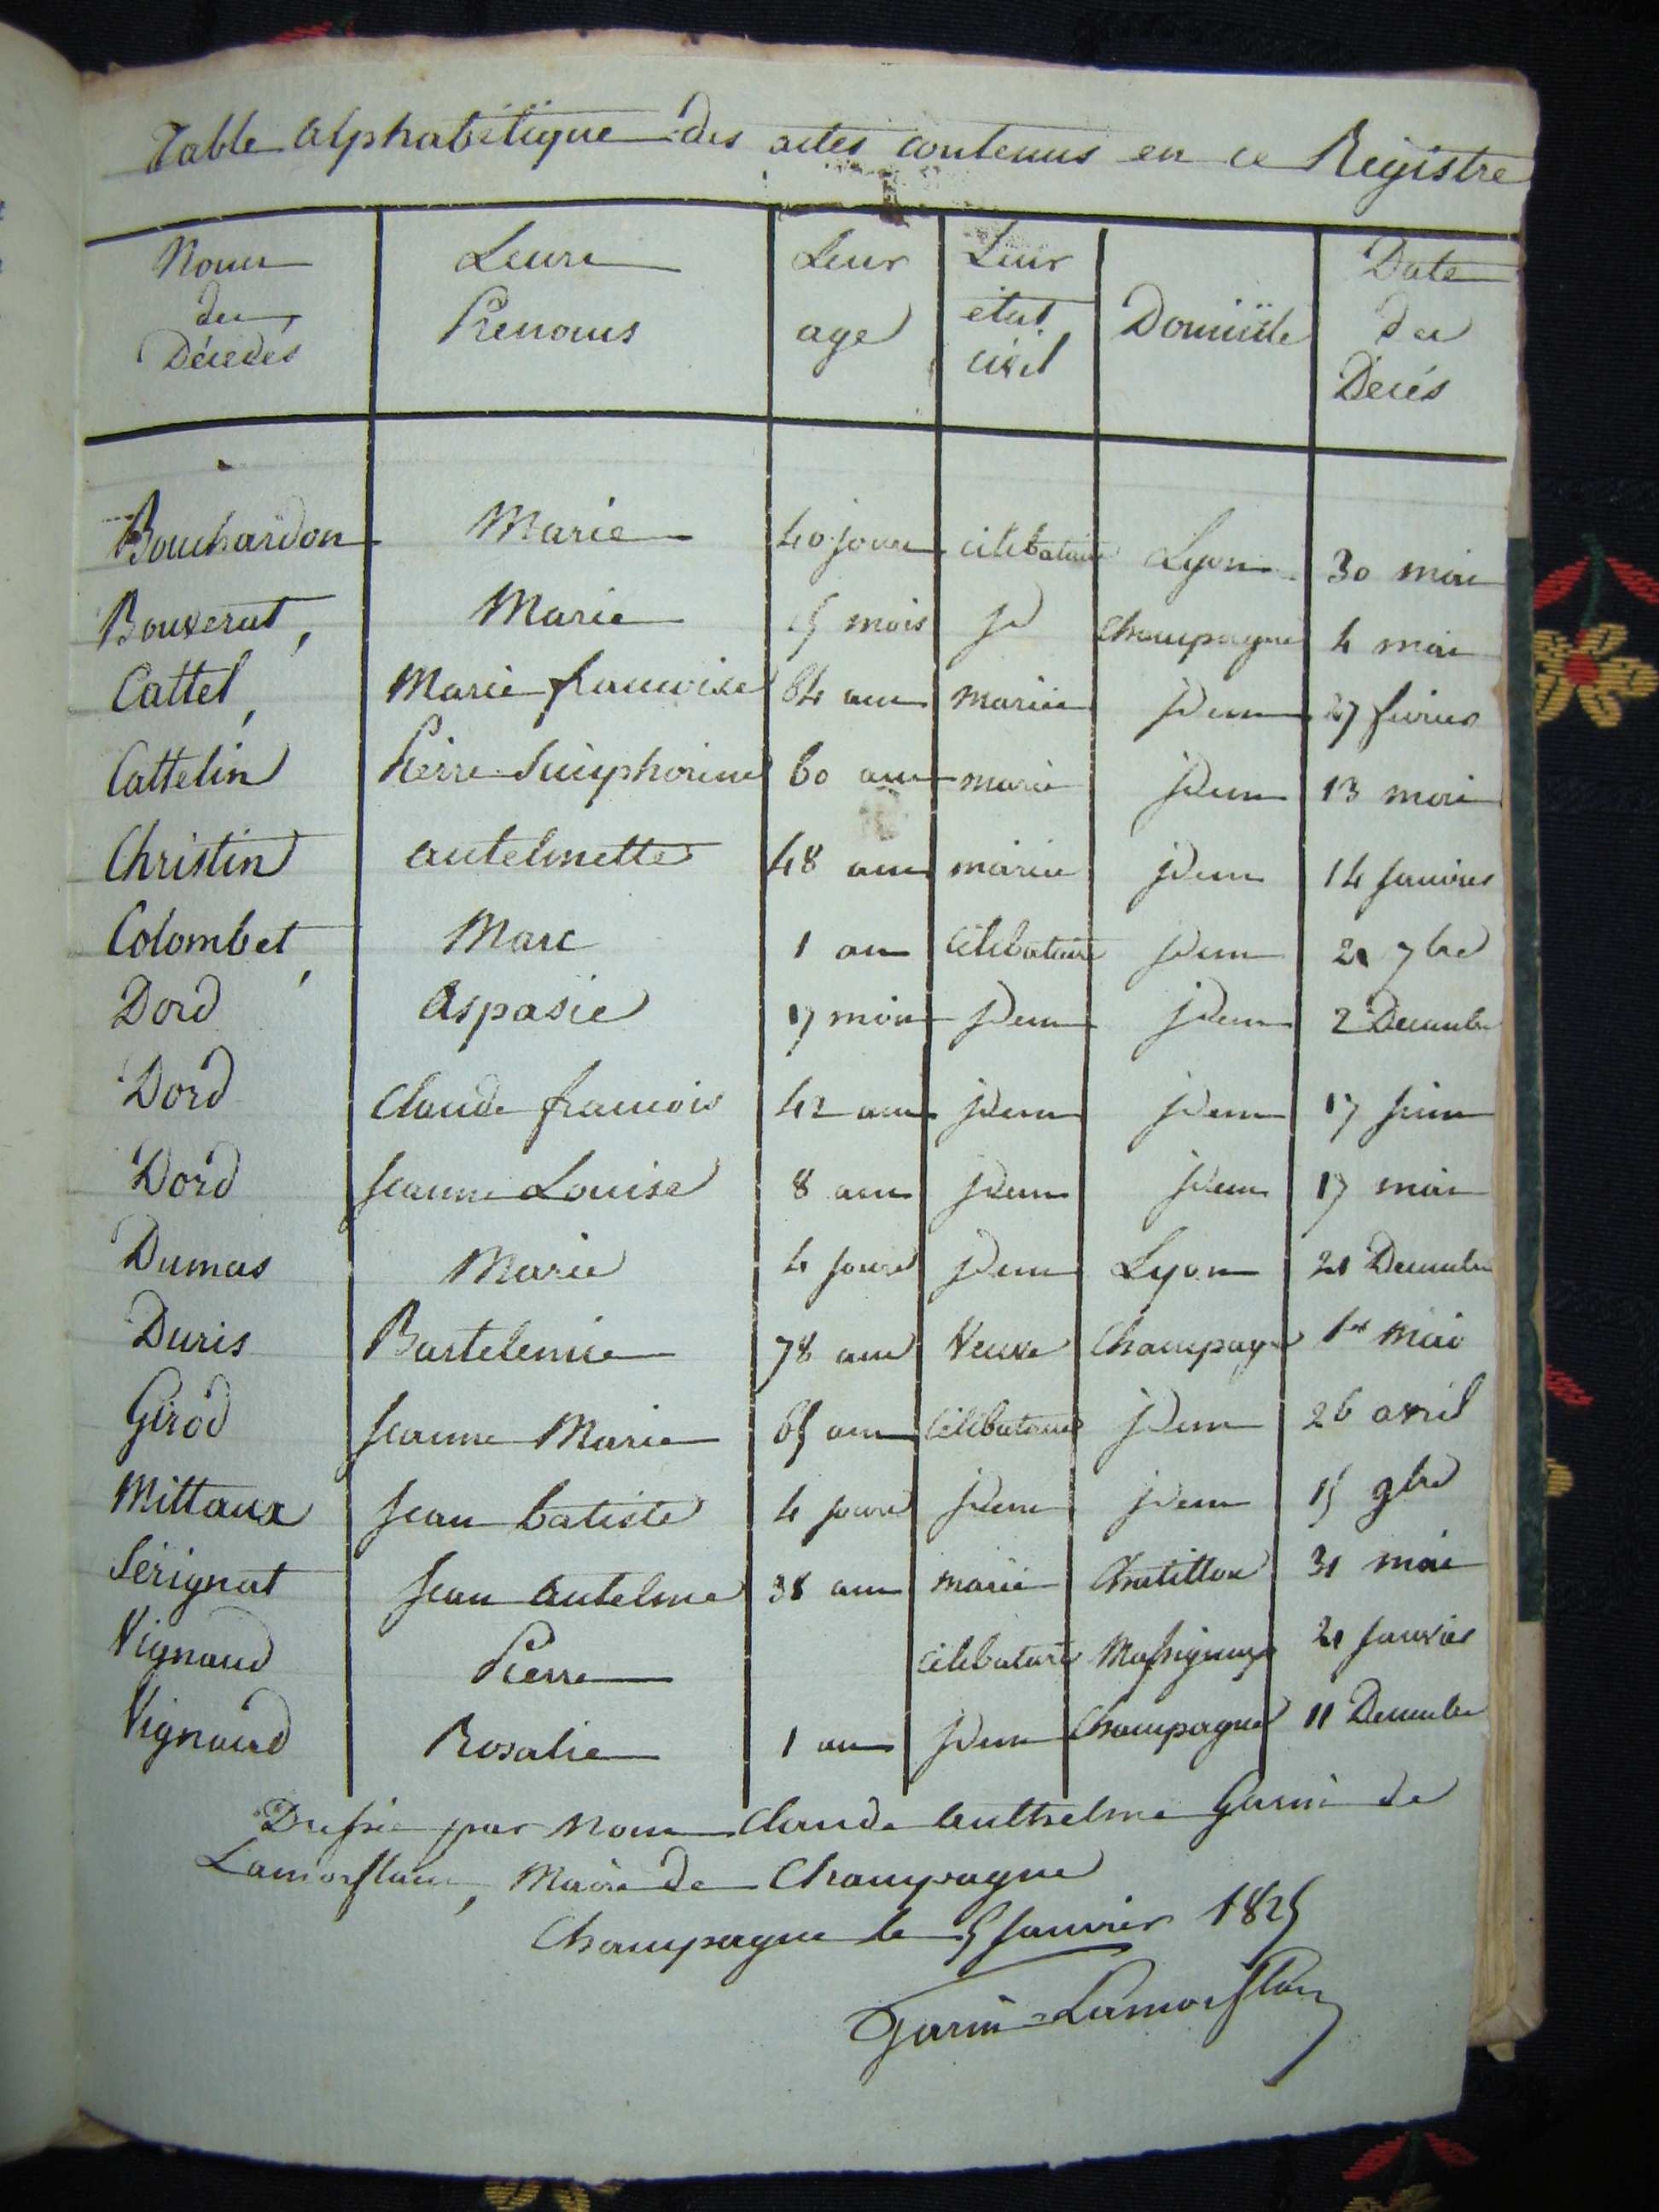 Table alphabétique des actes contenus en ce Registre
Noms des Décédés Leurs Prenoms Leur age Leur état civil Domicile Date des Décés
Bouchardon Marie 40 jours célibataire Lyon 30 mai
Bouverat, Marie 15 mois jd Champagne 4 mai
Cattel, Marie francoise 64 ans mariée jdem 27 fevrier
Cattelin Pierre Simphorien 60 ans marié jdem 13 mai
Christin antelmette 48 ans mariée jdem 14 janvier
Colombet, Marc 1 an célibataire jdem 21 7bre
Dord Aspasie 17 mois jdem jdem 2 Decembre
Dord Claude francois 42 ans jdem jdem 17 juin
Dord jeanne Louise 8 ans jdem jdem 17 mai
Dumas Marie 4 jours jdem Lyon 21 Decembre
Duris Bartelemie 78 ans Veuve Champagne 1er mai
Girod jeanne Marie 65 ans célibataire jdem 26 avril
Mittaux jean batiste 4 jours jdem jdem 15 9bre
Sérignat jean antelme 38 ans marié Chatillon 31 mai
Vignaud Pierre célibataire Massignieu 21 janvier
Vignaud Rosalie 1 an jdem Champagne 11 Decembre
Dressé par nous Claude Anthelme Garin de
Lamorflanc, Maire de Champagne
Champagne le 5 janvier 1825
Garin-Lamorflanc